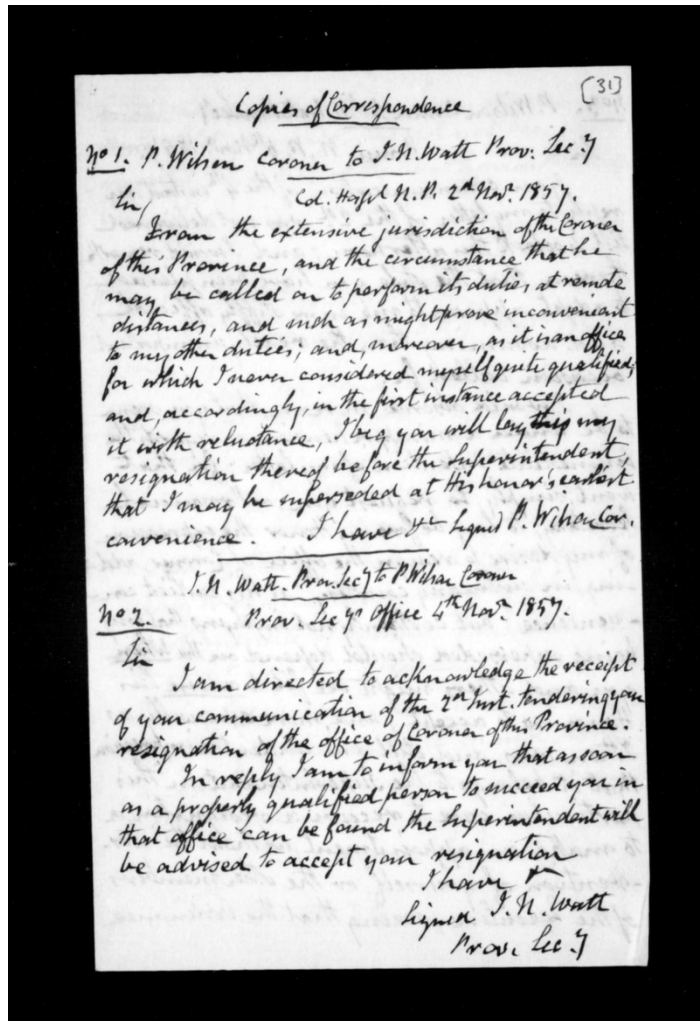 [31]
Copies of Correspondence
No 1. P. Wilson Coroner to I.N. Watt Prov. Sec.y
Sir, Col. Hospl N. P. 2nd Novr. 1857.
From the extensive jurisdiction of the Coroner
of this Province, and the circumstance that he
may be called on to perform its duties at remote
distances, and such as might prove inconvenient
to my other duties; and, moreover, as it is an office
for which I never considered myself quite qualified;
and, accordingly, in the first instance accepted
it with reluctance, I beg you will lay this my
resignation thereof before the Superintendent,
that I may be superseded at His honor's earliest
convenience. I have &c Signed P. Wilson Cor.
I. N. Watt. Prov. Sec y to P Wilson Coroner
No 2. Prov. Sec ys Office 4th Novr. 1857.
Sir
I am directed to acknowledge the receipt
of your communication of the 2nd Inst. tendering your
resignation of the office of Coroner of this Province.
In reply I am to inform you that as soon
as a properly qualified person to succeed you in
that office can be found the Superintendent will
be advised to accept your resignation
I have &c
Signed I. N. Watt
Prov. Sec.y